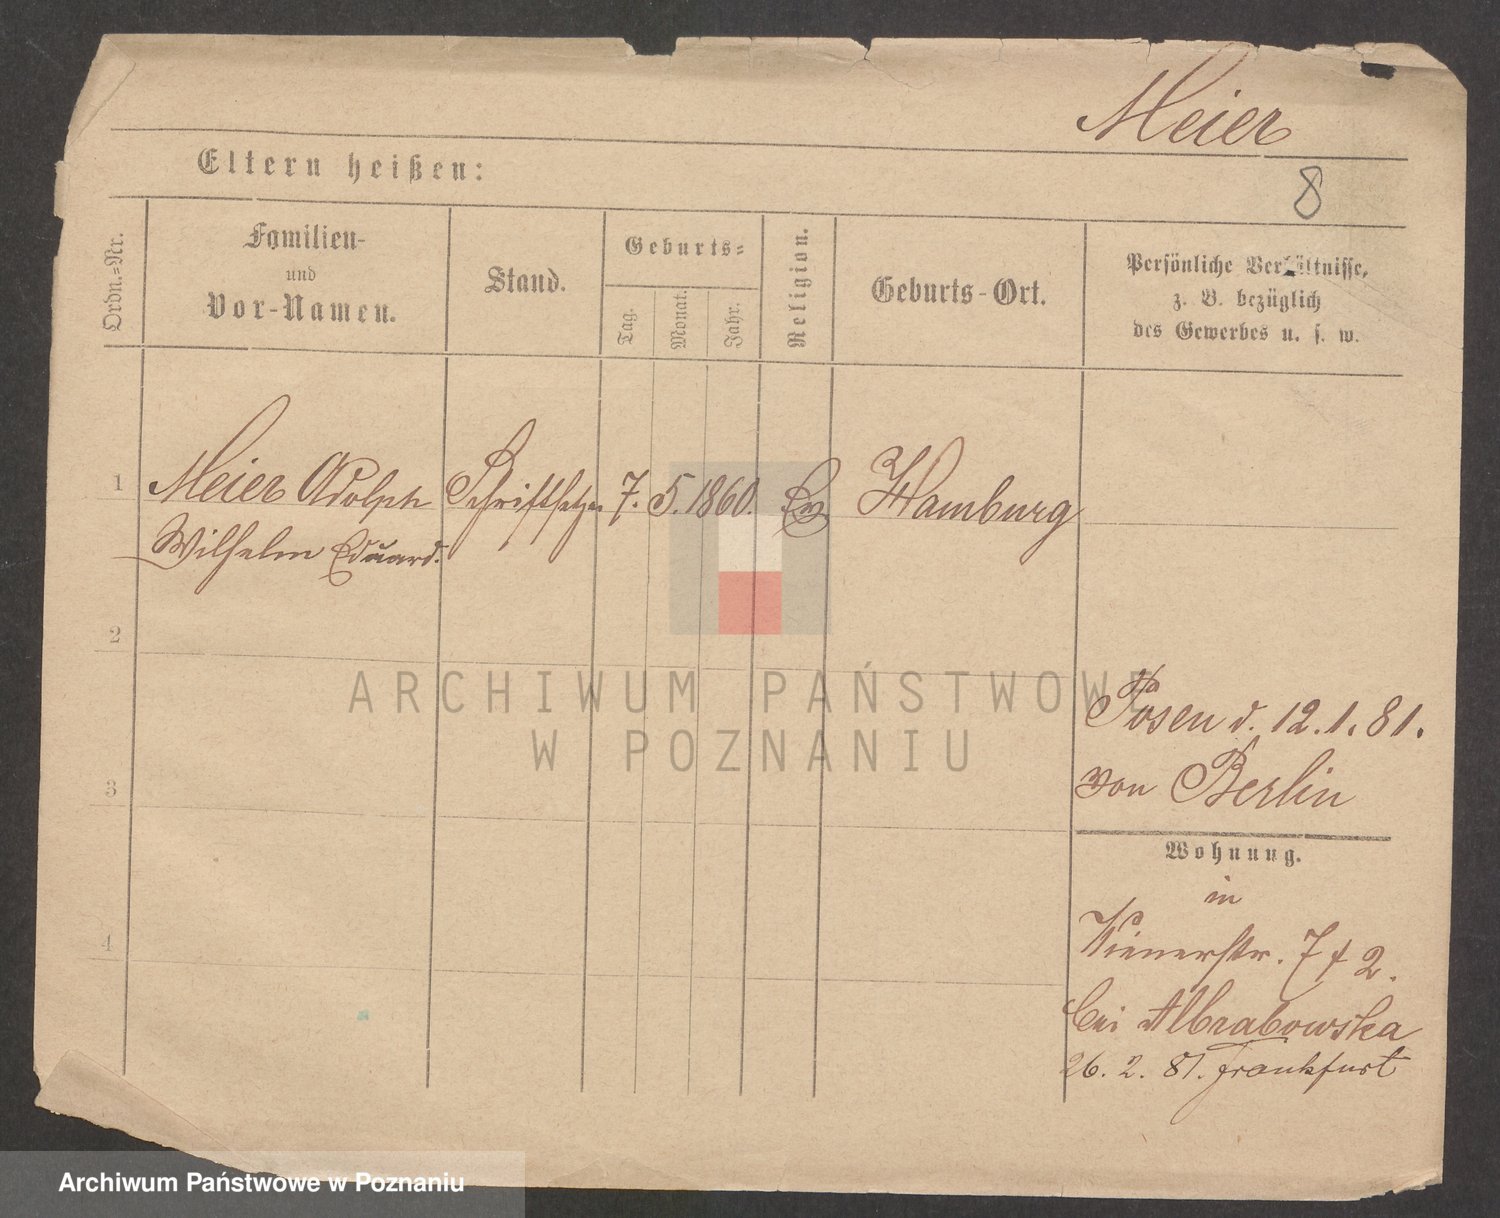 Meier
Eltern heißen:
8
Ordn.=Nr.
Familien-
und
Vor-Namen.
Stand.
Geburts=
Tag.
Monat.
Jahr.
Religion.
Geburts-Ort.
Persönliche Verhältnisse,
z. B. bezüglich
des Gewerbes u. s. w.
1
Meier Adolph
Wilhelm Eduard.
Schriftsetzer
7.
5.
1860.
Ev
Hamburg
2
3
4
Posen d. 12.1.81.
von Berlin
Wohnung.
in
Wienerstr. 7 f 2.
bei Albrabowska
26. 2. 81. Frankfurt
ARCHIWUM PAŃSTWOWE
W POZNANIU
Archiwum Państwowe w Poznaniu